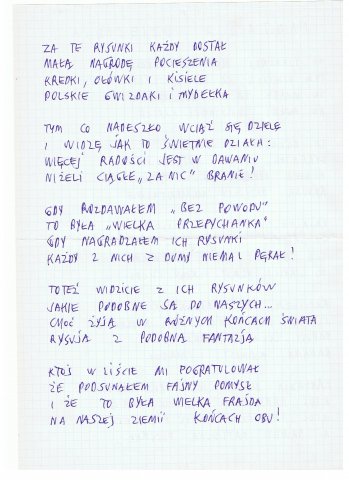 ZA TE RYSUNKI KAŻDY DOSTAŁ
MAŁĄ NAGRODĘ POCIESZENIA
KREDKI, OŁÓWKI I KISIELE
POLSKIE GWIZDAKI I MYDEŁKA
TYM CO NADESZŁO WCIĄŻ SIĘ DZIELĘ
I WIDZĘ JAK TO ŚWIETNIE DZIAŁA:
WIĘCEJ RADOŚCI JEST W DAWANIU
NIŻELI CIĄGŁE „ZA NIC" BRANIE!
GDY ROZDAWAŁEM „BEZ POWODU"
TO BYŁA „WIELKA PRZEPYCHANKA"
GDY NAGRADZAŁEM ICH RYSUNKI
KAŻDY Z NICH Z DUMY NIEMAL PĘKAŁ!
TOTEŻ WIDZICIE Z ICH RYSUNKÓW
JAKIE PODOBNE SĄ DO NASZYCH...
CHOĆ ŻYJĄ W RÓŻNYCH KOŃCACH ŚWIATA
RYSUJĄ Z PODOBNĄ FANTAZJĄ
KTOŚ W LIŚCIE MI POGRATULOWAŁ
ŻE PODSUNĄŁEM FAJNY POMYSŁ
I ŻE TO BYŁA WIELKA FRAJDA
NA NASZEJ ZIEMII KOŃCACH OBU!